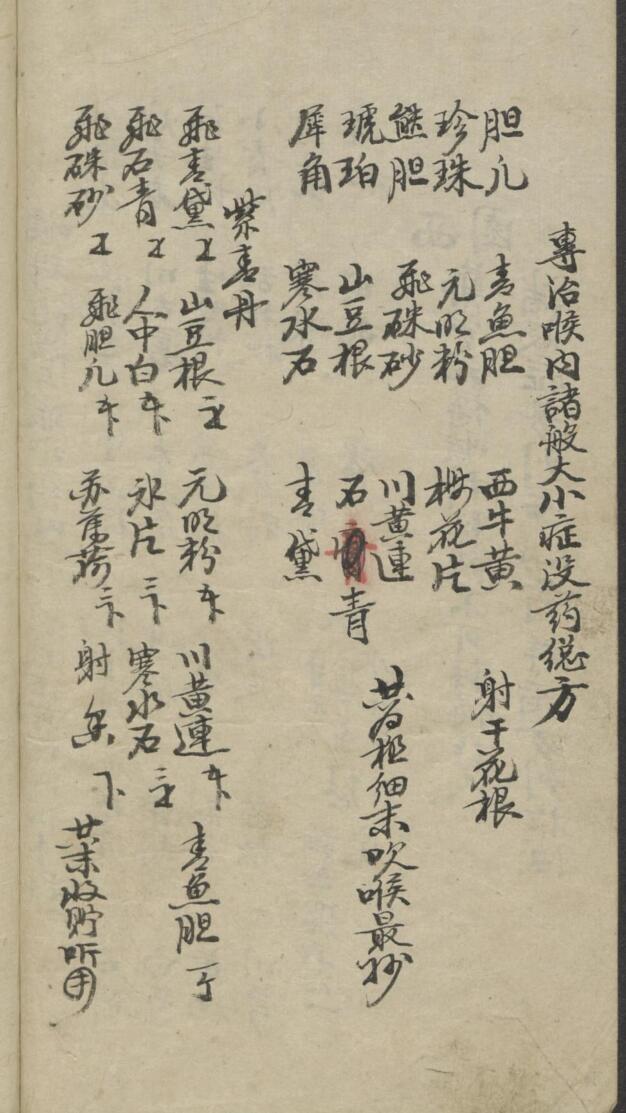 專治喉内諸般大小症没药縂方
胆几 青魚胆 西牛黄 射干花根
珍珠 元明粉 梅花片
熊胆 飛硃砂 川黄連 共为极细末吹喉最妙
琥珀 山豆根 石青
犀角 寒水石 青黛
紫青丹
飛青黛 山豆根 元明粉 川黄連 青魚胆
飛石青 人中白 氷片 寒水石
飛硃砂 飛胆几 苏薄荷 射香 共末收貯听用